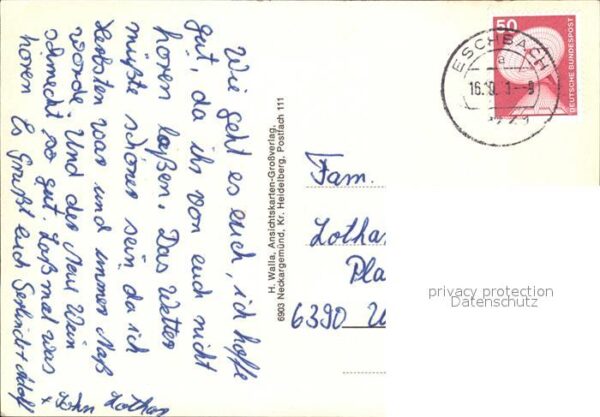 Wie geht es euch, ich hoffe
gut, da ihr von euch nicht
hören laßen. Das Wetter
müßte schöner sein da ich
Herbsten war und immer Naß
worde. Und der Neue Wein
schmeckt so gut. Laßmal was
hören
Es Grüßt euch Gerlinde + Adolf
+ John Lothar
H. Walla, Ansichtskarten-Großverlag,
6903 Neckargemünd, Kr. Heidelberg, Postfach 111
50
DEUTSCHE BUNDESPOST
ESCHBACH
a
Fam.
Lothar
Pla
6390 U
privacy protection
Datenschutz